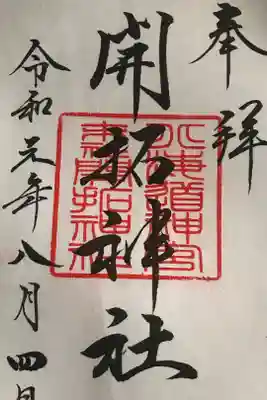 奉拝
開拓神社
北海道神宮
末社開拓神社
令和元年八月四日